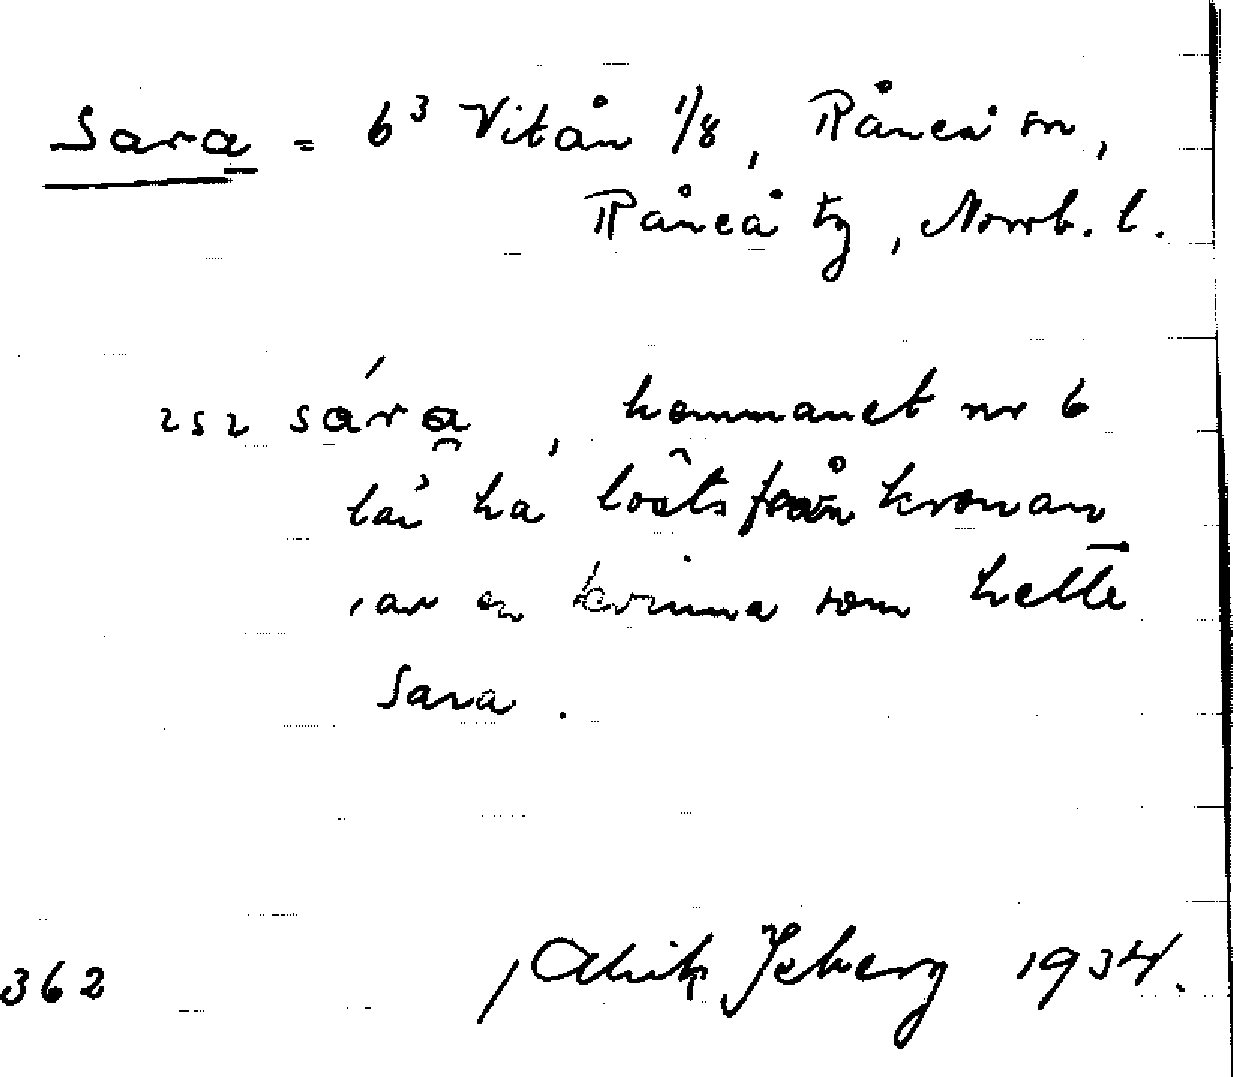 Sara = 6³ Vitån 1/8, Råneå sn,
Råneå tg, Norrb. l.
252 sára̯, hemmanet nr 6
lär ha lösts från kronan
av en kvinna som hette
Sara.
362 Isberg 1934.